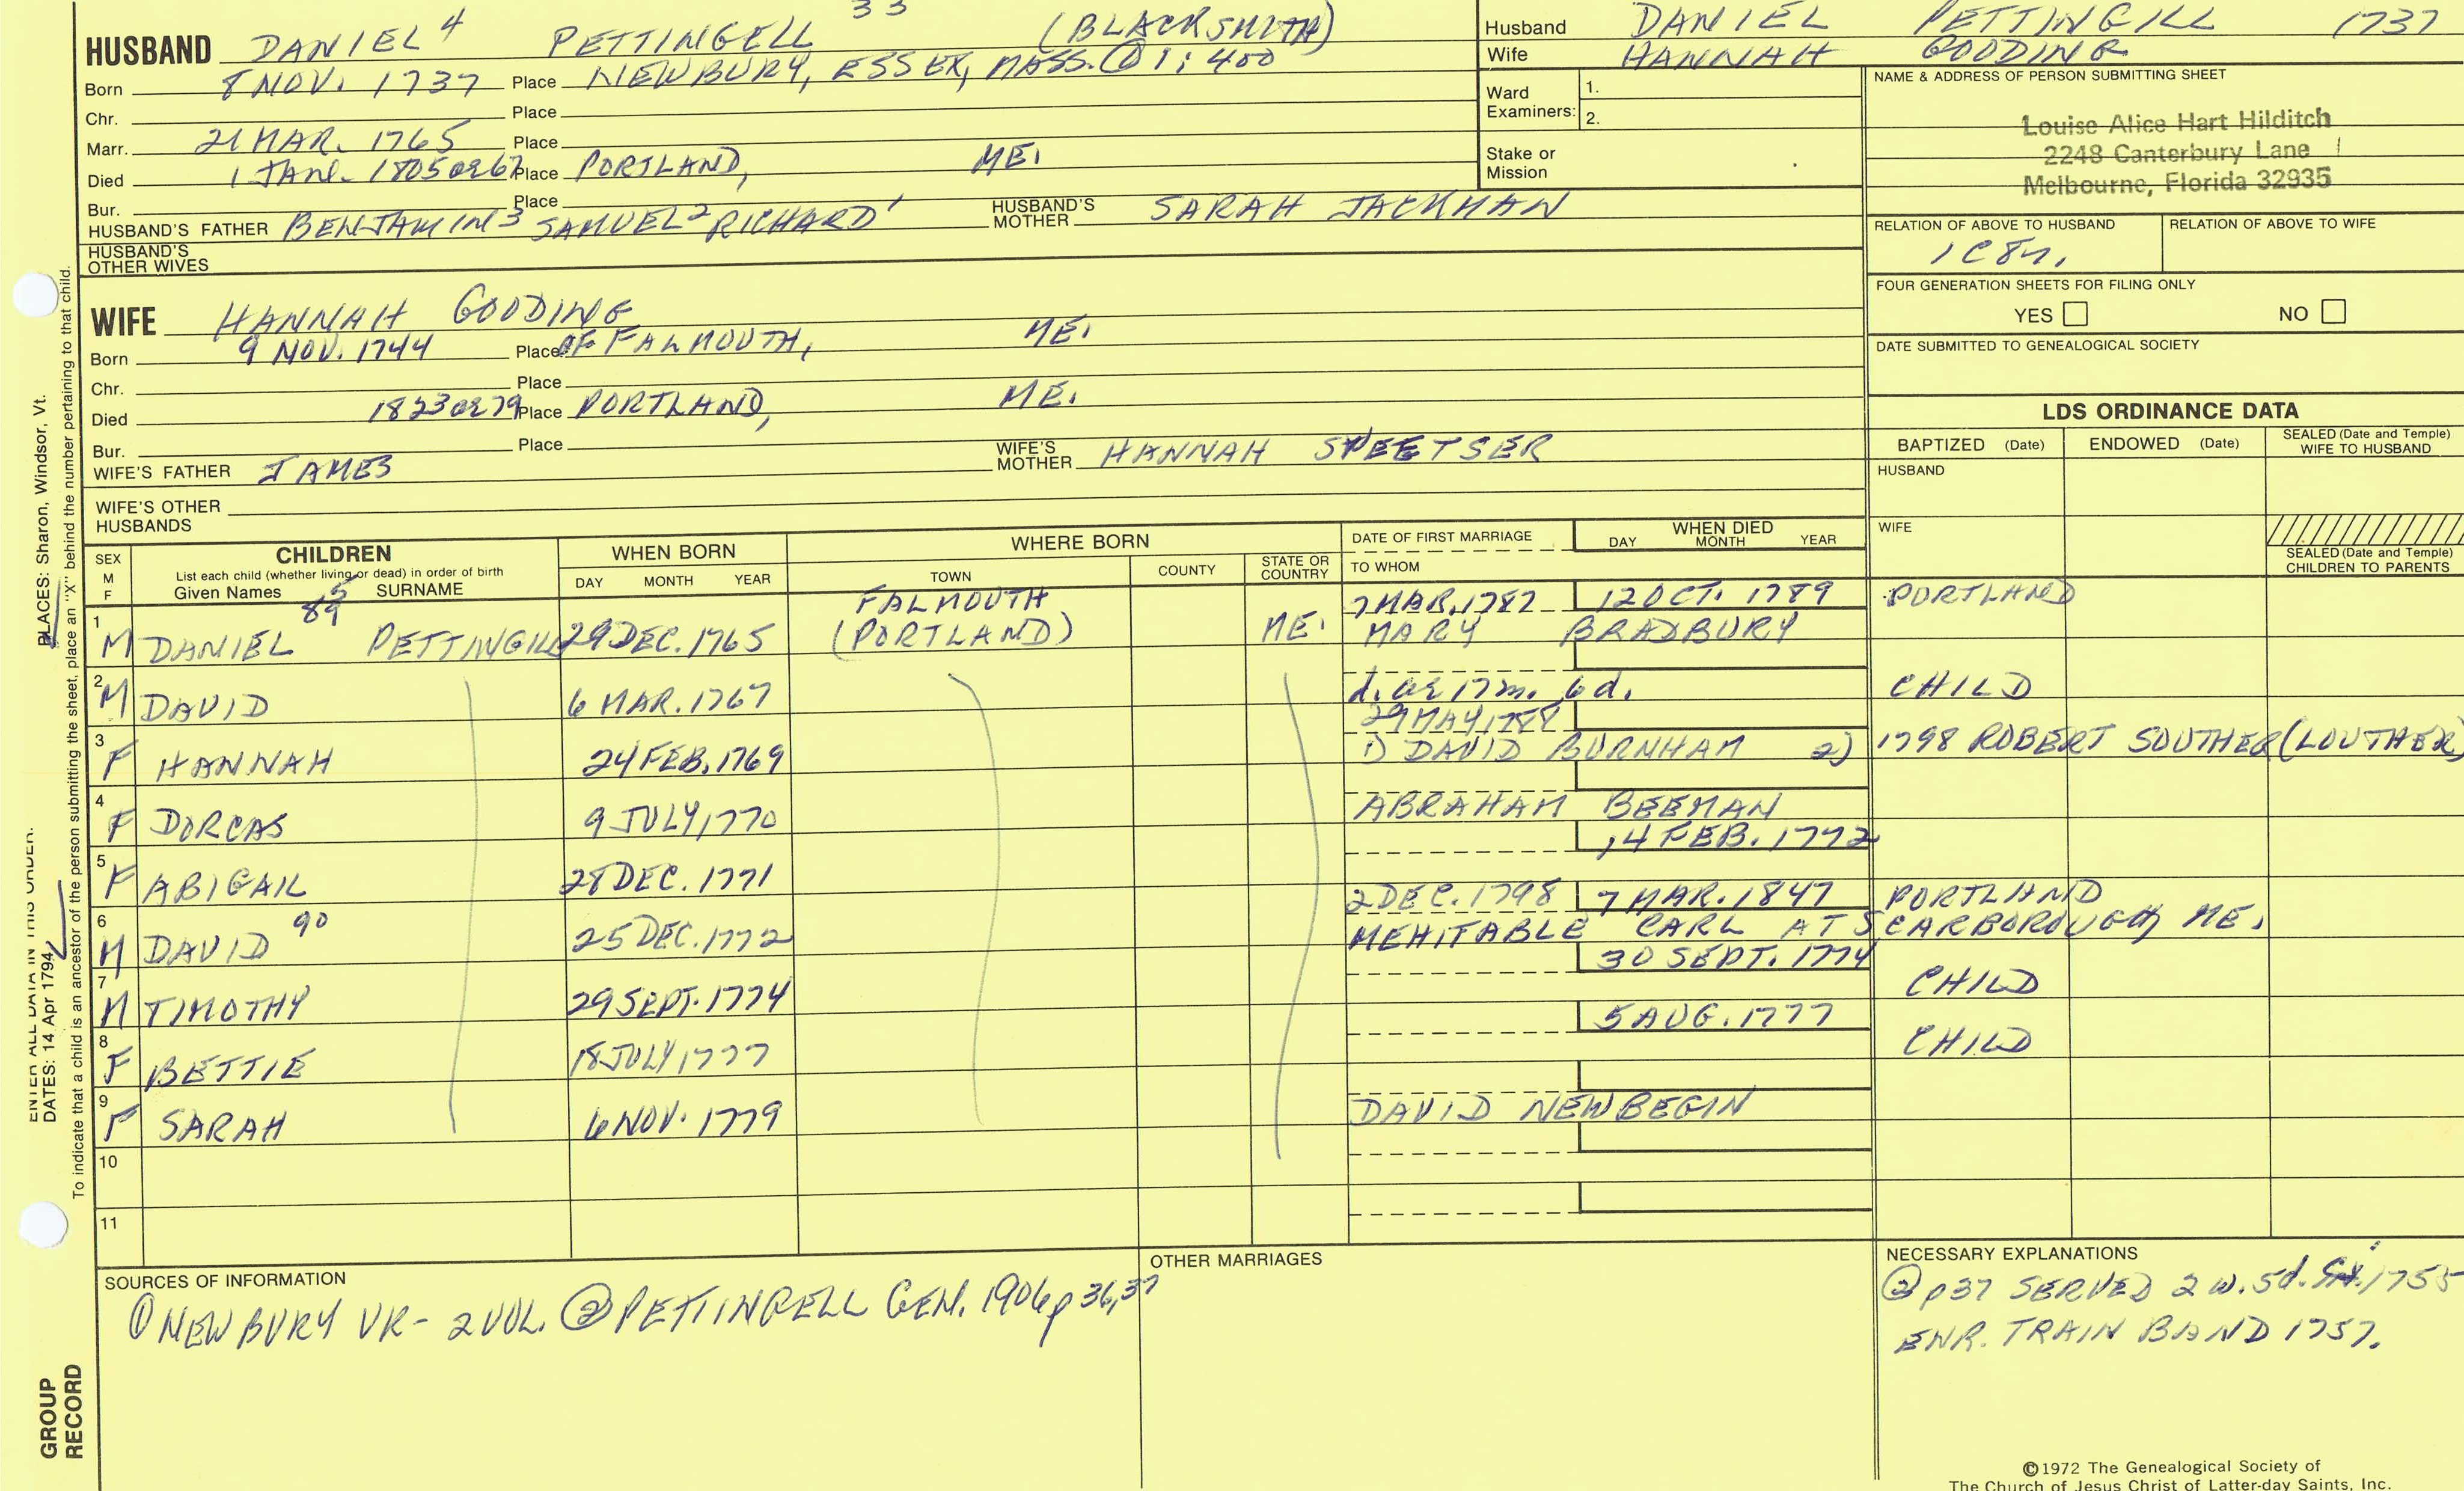 33
HUSBAND DANIEL 4 PETTINGELL (BLACKSMITH)
Born 8 NOV. 1737 Place NEWBURY, ESSEX, MASS. ① 1: 400
Chr. Place
Marr. 21 MAR. 1765 Place
Died 1 JANE. 1805 OR 6? Place PORTLAND, ME.
Bur. Place
HUSBAND'S FATHER BENJAMIN 3 SAMUEL 2 RICHARD 1 HUSBAND'S MOTHER SARAH JACKMAN
HUSBAND'S OTHER WIVES
WIFE HANNAH GOODING
Born 9 NOV. 1744 Place OF FALMOUTH, ME.
Chr. Place
Died 1823 OR 79 Place PORTLAND, ME.
Bur. Place
WIFE'S FATHER JAMES WIFE'S MOTHER HANNAH SWEETSER
WIFE'S OTHER HUSBANDS
Husband DANIEL PETTINGILL 1737
Wife HANNAH GOODING
Ward Examiners: 1.
2.
Stake or Mission
NAME & ADDRESS OF PERSON SUBMITTING SHEET
Louise Alice Hart Hilditch
2248 Canterbury Lane
Melbourne, Florida 32935
RELATION OF ABOVE TO HUSBAND RELATION OF ABOVE TO WIFE
1C8r.
FOUR GENERATION SHEETS FOR FILING ONLY
YES NO
DATE SUBMITTED TO GENEALOGICAL SOCIETY
LDS ORDINANCE DATA
BAPTIZED (Date) ENDOWED (Date) SEALED (Date and Temple) WIFE TO HUSBAND
HUSBAND
WIFE
SEALED (Date and Temple) CHILDREN TO PARENTS
SEX M F CHILDREN List each child (whether living or dead) in order of birth Given Names SURNAME
WHEN BORN DAY MONTH YEAR
WHERE BORN TOWN COUNTY STATE OR COUNTRY
DATE OF FIRST MARRIAGE TO WHOM
WHEN DIED DAY MONTH YEAR
89 5 FALMOUTH 7 MAR. 1787 12 OCT. 1789 PORTLAND
1 M DANIEL PETTINGILL 29 DEC. 1765 (PORTLAND) ME. MARY BRADBURY
2 M DAVID 6 MAR. 1767 d. ae 17 m. 6 d. CHILD
29 MAY 1788
3 F HANNAH 24 FEB. 1769 1) DAVID BURNHAM 2) 1798 ROBERT SOUTHER (LOUTHER)
4 F DORCAS 9 JULY, 1770 ABRAHAM BEEMAN
14 FEB. 1772
5 F ABIGAIL 28 DEC. 1771
2 DEC. 1798 7 MAR. 1847 PORTLAND
6 M DAVID 90 25 DEC. 1772 MEHITABLE CARL AT SCARBOROUGH, ME.
30 SEPT. 1774
7 M TIMOTHY 29 SEPT. 1774 CHILD
5 AUG. 1777
8 F BETTIE 18 JULY, 1777 CHILD
9 F SARAH 6 NOV. 1779 DAVID NEWBEGIN
10
11
SOURCES OF INFORMATION
① NEWBURY VR - 2 VOL. ② PETTINGELL GEN. 1906 p 36,37
OTHER MARRIAGES
NECESSARY EXPLANATIONS
② p37 SERVED 2 w. 5d. 1755
ENR. TRAIN BAND 1757.
PLACES: Sharon, Windsor, Vt.
To indicate that a child is an ancestor of the person submitting the sheet, place an "X" behind the number pertaining to that child.
ENTER ALL DATA IN THIS ORDER:
DATES: 14 Apr 1794
GROUP
RECORD
©1972 The Genealogical Society of
The Church of Jesus Christ of Latter-day Saints, Inc.